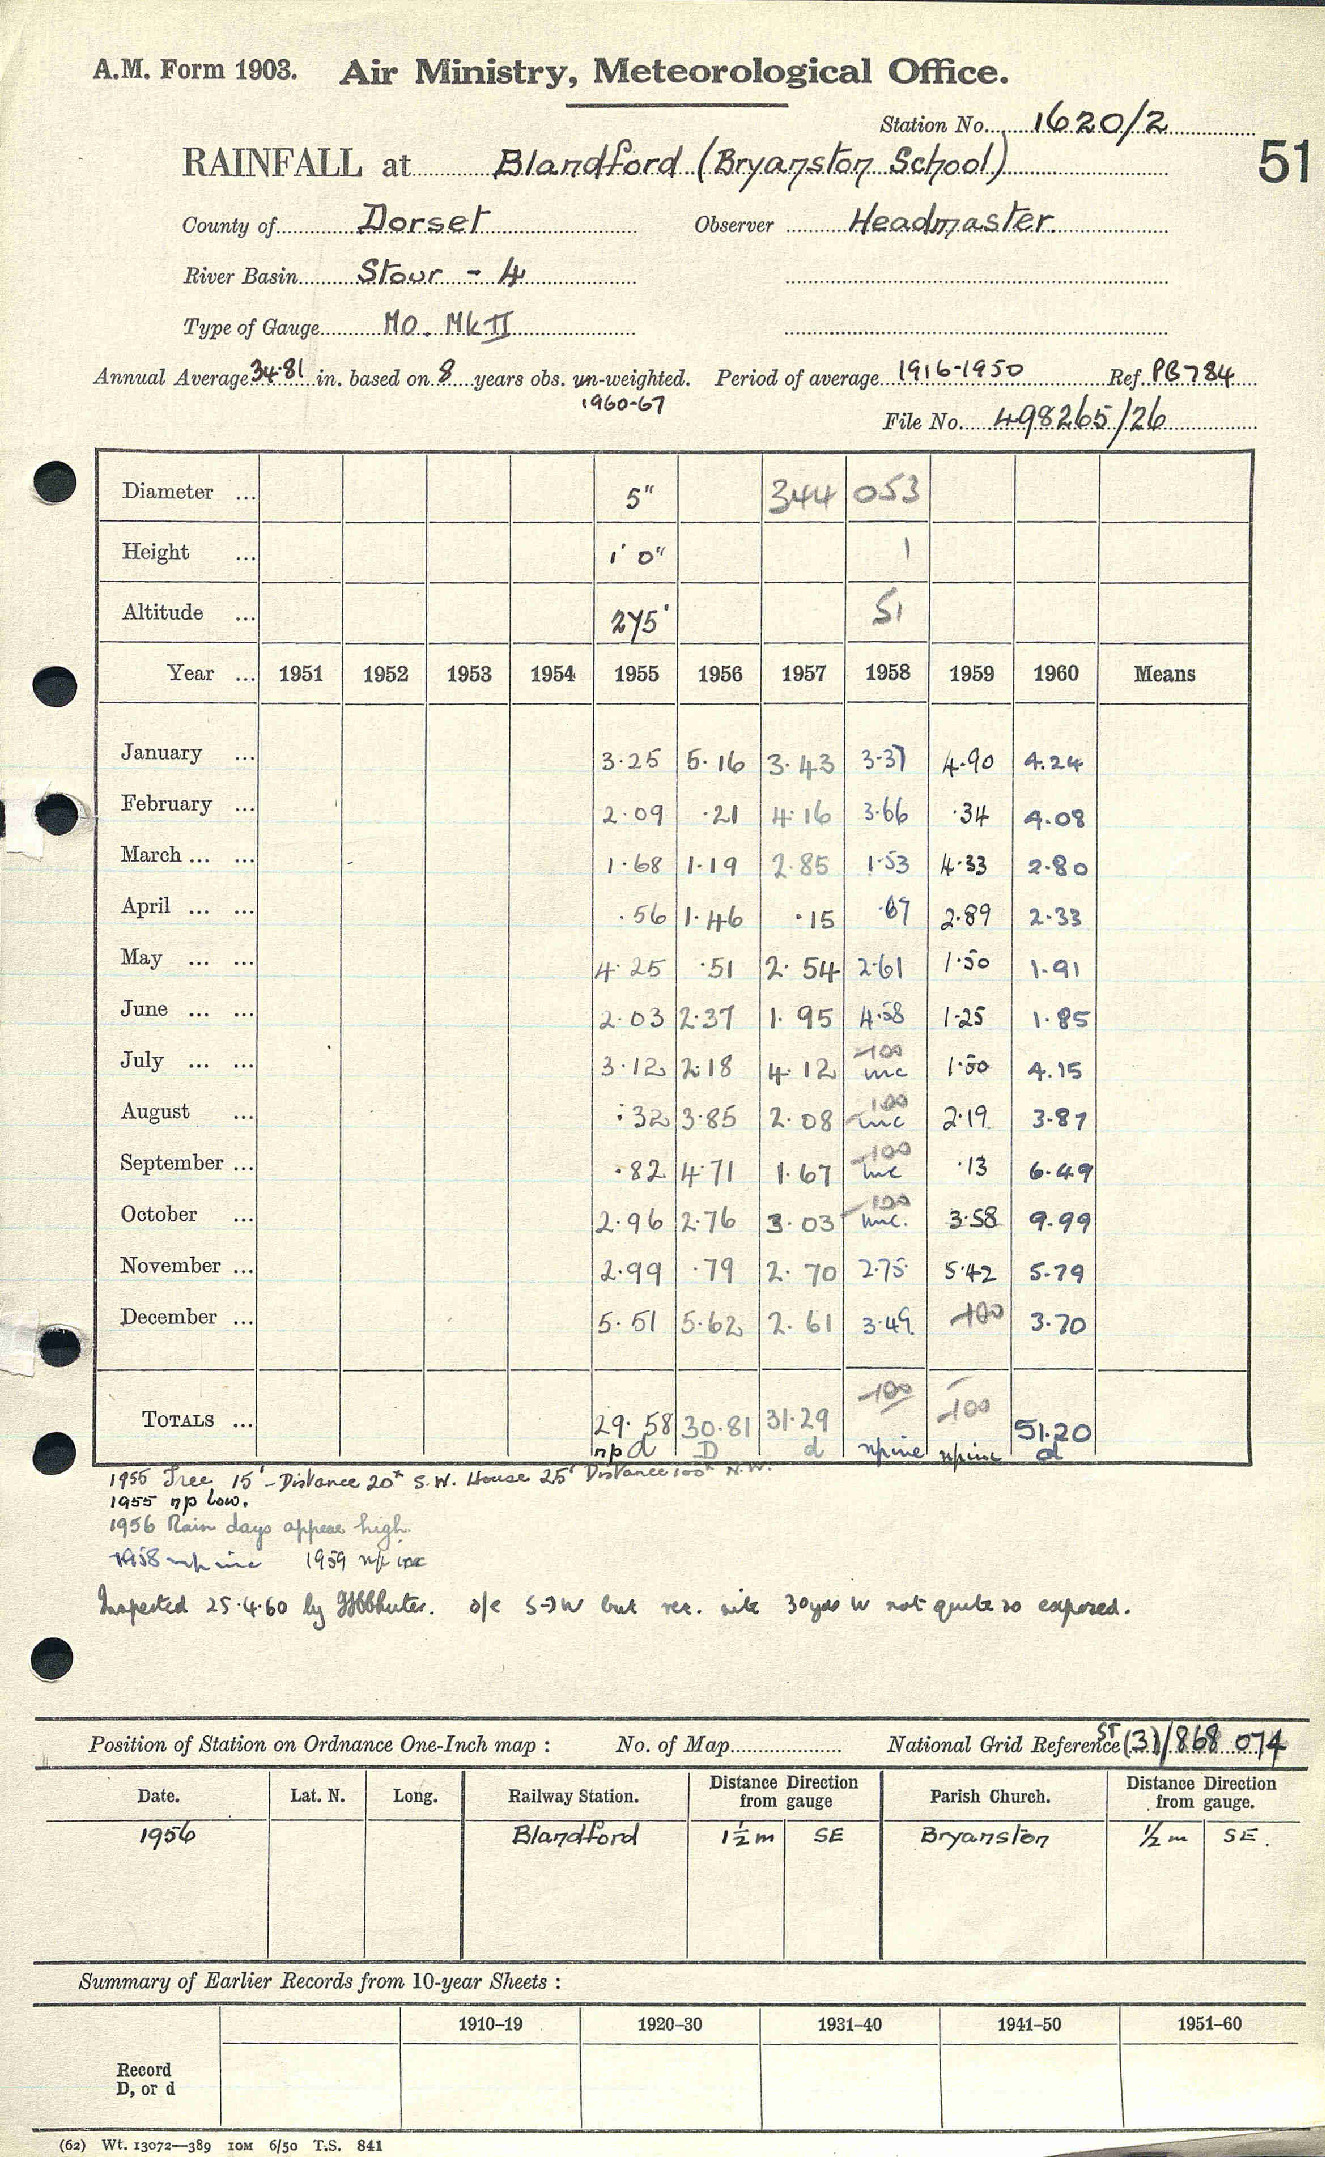 A.M. Form 1903. Air Ministry, Meteorological Office.
Station No. 1620/2
RAINFALL at Blandford (Bryanston School)
51
County of Dorset Observer Headmaster
River Basin Stour - 4
Type of Gauge MO. Mk II
Annual Average 34.81 in. based on 8 years obs. un-weighted. Period of average 1916-1950 Ref. PB784
1960-67
File No. 498265/26
Diameter ... 5" 344 053
Height ... 1' 0" 1
Altitude ... 275' 51
Year ... 1951 1952 1953 1954 1955 1956 1957 1958 1959 1960 Means
January ... 3.25 5.16 3.43 3.37 4.90 4.24
February ... 2.09 .21 4.16 3.66 .34 4.08
March ... ... 1.68 1.19 2.85 1.53 4.33 2.80
April ... ... .56 1.46 .15 .67 2.89 2.33
May ... ... 4.25 .51 2.54 2.61 1.50 1.91
June ... ... 2.03 2.37 1.95 4.58 1.25 1.85
July ... ... 3.12 2.18 4.12 -100 inc 1.50 4.15
August ... .32 3.85 2.08 -100 inc 2.19 3.87
September ... .82 4.71 1.67 -100 inc .13 6.49
October ... 2.96 2.76 3.03 -100 inc. 3.58 9.99
November ... 2.99 .79 2.70 2.75 5.42 5.79
December ... 5.51 5.62 2.61 3.49 -100 3.70
TOTALS ... 29.58 30.81 31.29 -100 -100 51.20
np d D d np inc np inc d
1955 Tree 15' - Distance 20x S.W. House 25' Distance 100x N.W.
1955 np Low.
1956 Rain days appear high.
1958 np inc 1959 np inc
Inspected 25.4.60 by o/e S→W but rec. site 30yds W not quite so exposed.
Position of Station on Ordnance One-Inch map : No. of Map National Grid Reference ST (31)/868 074
Date. Lat. N. Long. Railway Station. Distance Direction from gauge Parish Church. Distance Direction from gauge.
1956 Blandford 1½m SE Bryanston ½ m SE.
Summary of Earlier Records from 10-year Sheets :
1910–19 1920–30 1931–40 1941–50 1951–60
Record
D, or d
(62) Wt. 13072—389 10M 6/50 T.S. 841